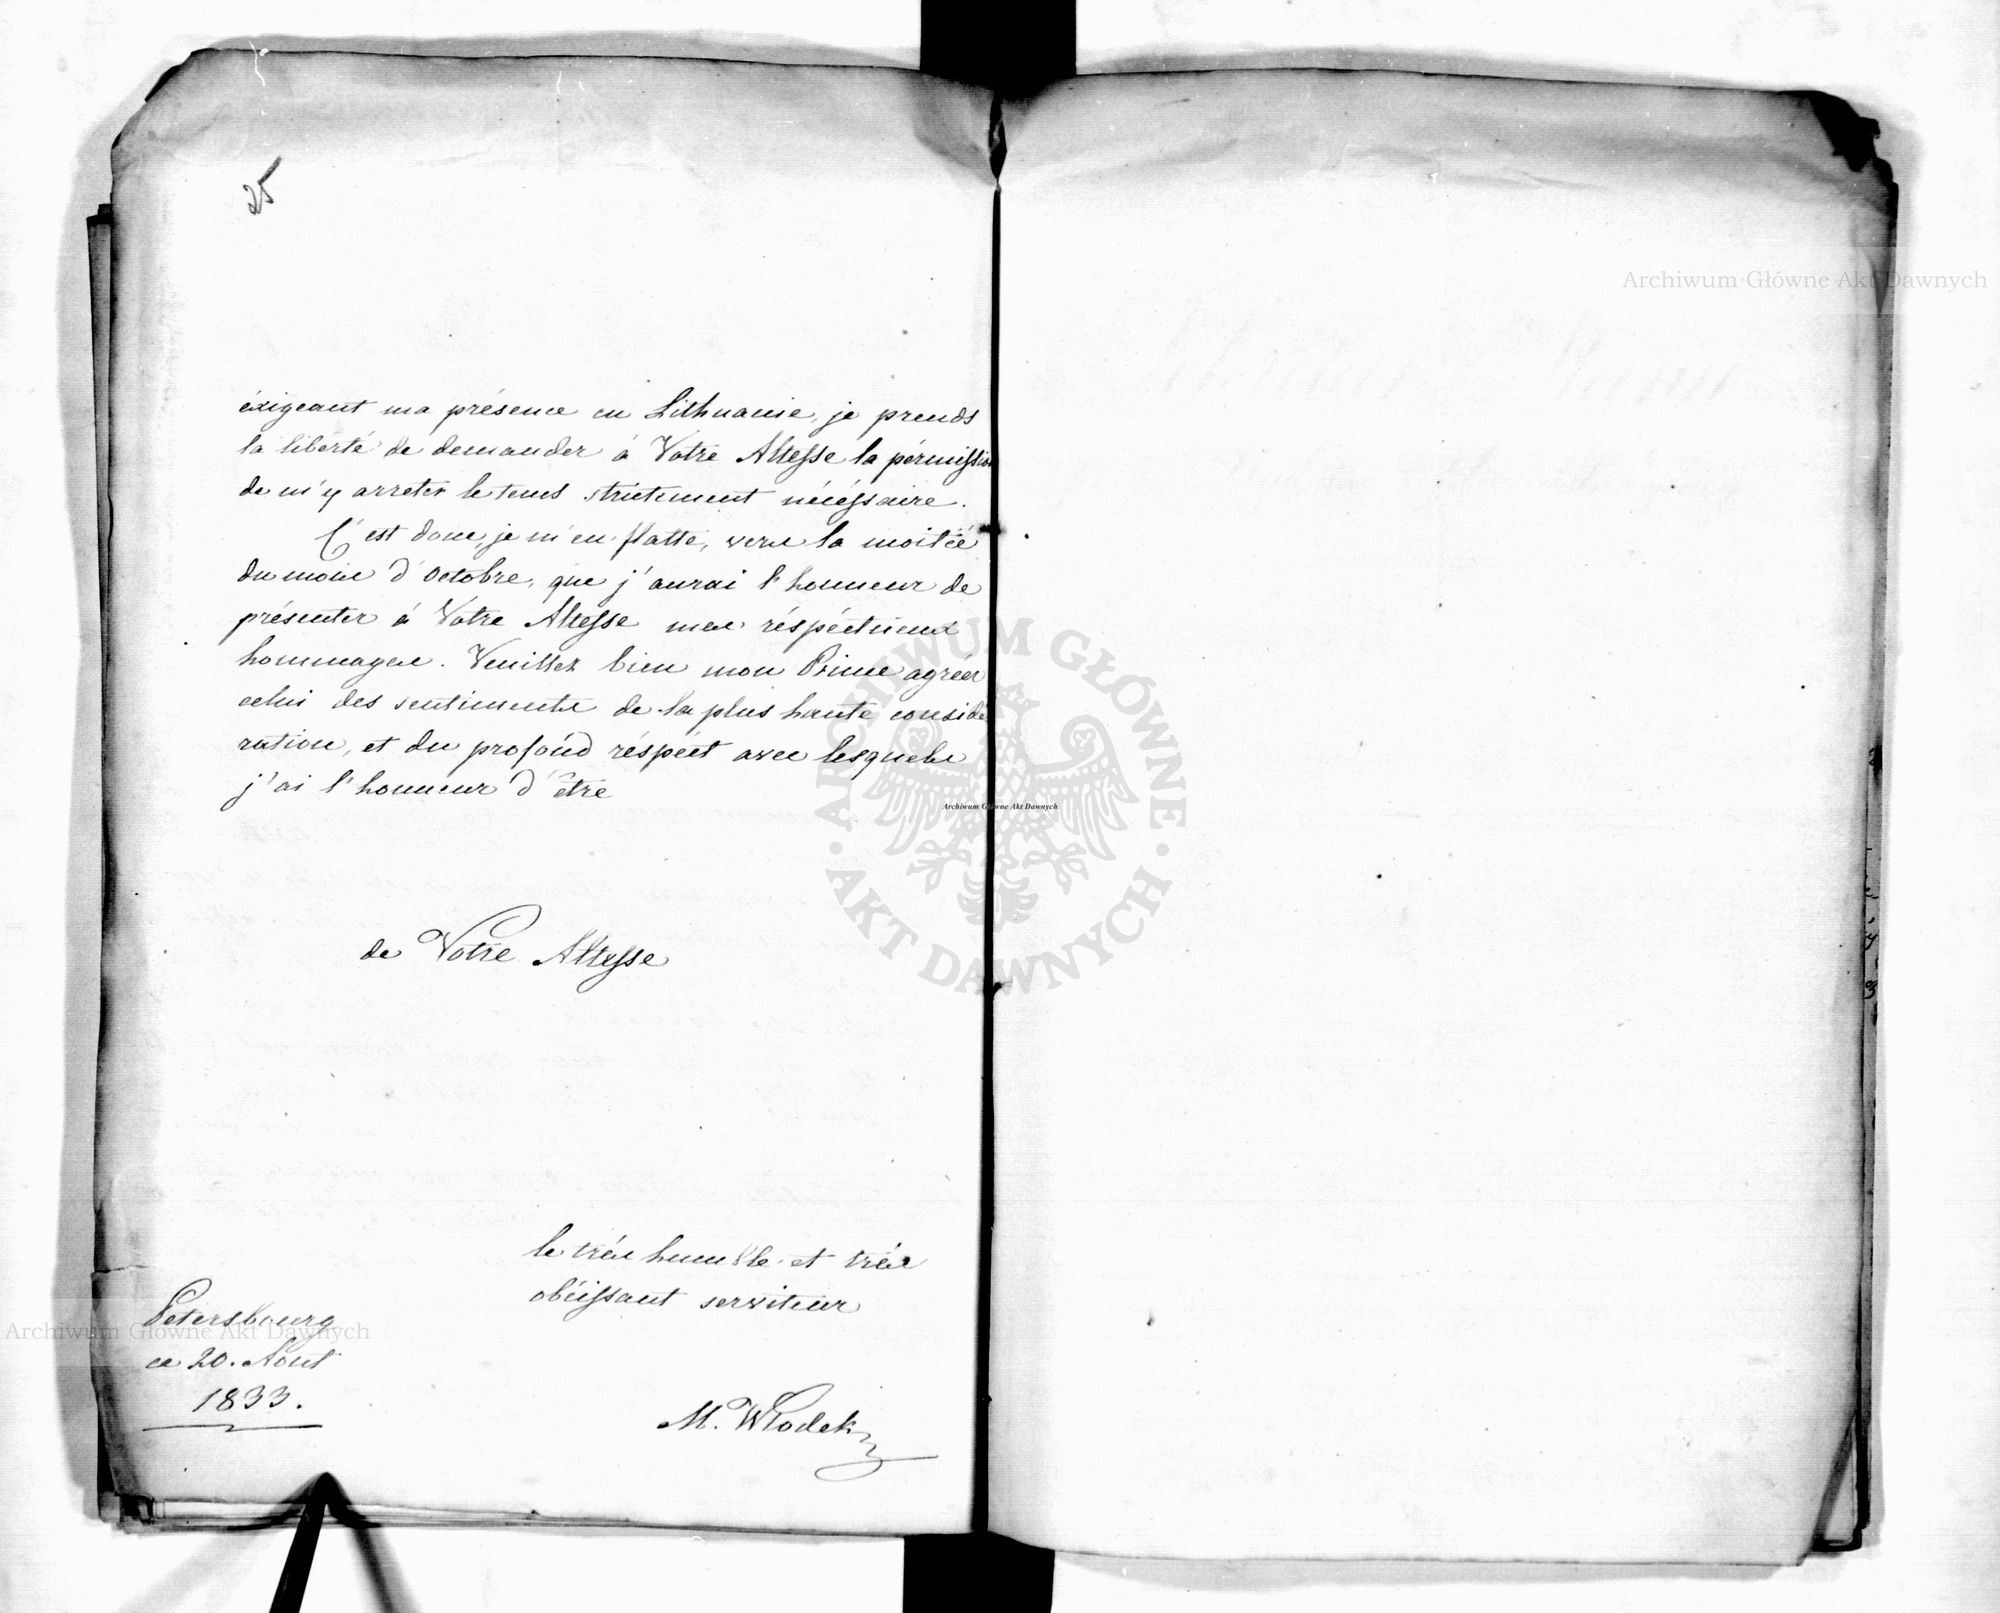 25
éxigeant ma présence en Lithuanie, je prends
la liberté de demander à Votre Altesse la pérmission
de m'y arreter le tems strictement nécéssaire.
C'est donc, je m'en flatte, vers la moitié
du mois d'Octobre, que j'aurai l'honneur de
présenter à Votre Altesse mes réspéctueux
hommages. Veuillez bien mon Prince agréer
celui des sentiments de la plus haute considé
ration, et du profond réspéct avec lesquels
j'ai l'honneur d'être
de Votre Altesse
le très humble et très
obéissant serviteur
Petersbourg
ce 20. Aout
1833.
M. Wlodek
Archiwum Główne Akt Dawnych
ARCHIWUM GŁÓWNE
· AKT DAWNYCH ·
Archiwum Główne Akt Dawnych
Archiwum Główne Akt Dawnych